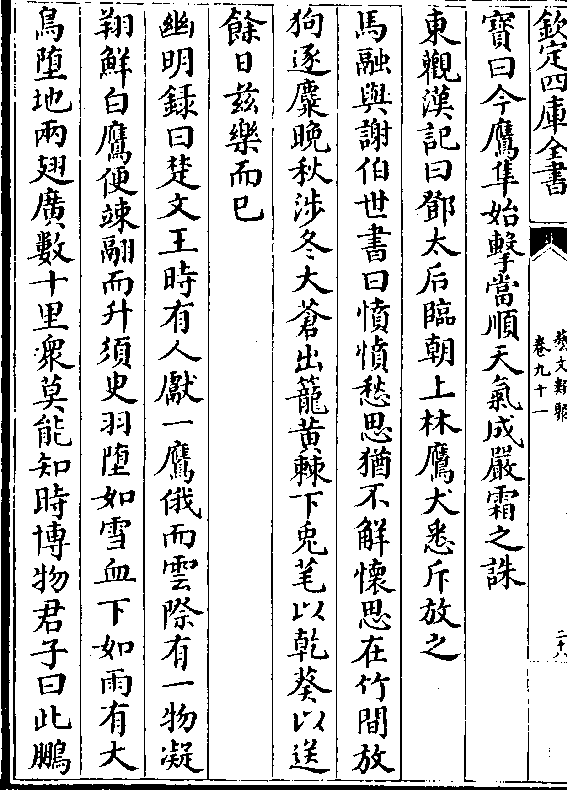 欽定四庫全書
藝文類聚
卷九十一
二十八
寳曰今鷹隼始擊當順天氣成嚴霜之誅
東觀漢記曰鄧太后臨朝上林鷹犬悉斥放之
馬融與謝伯世書曰憤憤愁思猶不解懷思在竹間放
狗逐麋晚秋涉冬大蒼出籠黄棘下兎芼以乾葵以送
餘日兹樂而已
幽明録曰楚文王時有人獻一鷹俄而雲際有一物凝
翔鮮白鷹便竦翮而升須臾羽堕如雪血下如雨有大
鳥堕地兩翅廣數十里衆莫能知時博物君子曰此鵬